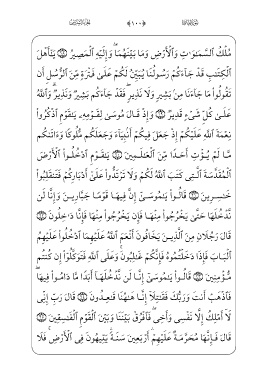 مُلْكُ ٱلسَّمَٰوَٰتِ وَٱلْأَرْضِ وَمَا بَيْنَهُمَا ۖ وَإِلَيْهِ ٱلْمَصِيرُ ۝ يَٰٓأَهْلَ
ٱلْكِتَٰبِ قَدْ جَآءَكُمْ رَسُولُنَا يُبَيِّنُ لَكُمْ عَلَىٰ فَتْرَةٍ مِّنَ ٱلرُّسُلِ أَن
تَقُولُوا۟ مَا جَآءَنَا مِنۢ بَشِيرٍ وَلَا نَذِيرٍ ۖ فَقَدْ جَآءَكُم بَشِيرٌ وَنَذِيرٌ ۗ وَٱللَّهُ
عَلَىٰ كُلِّ شَىْءٍ قَدِيرٌ ۝ وَإِذْ قَالَ مُوسَىٰ لِقَوْمِهِۦ يَٰقَوْمِ ٱذْكُرُوا۟
نِعْمَةَ ٱللَّهِ عَلَيْكُمْ إِذْ جَعَلَ فِيكُمْ أَنۢبِيَآءَ وَجَعَلَكُم مُّلُوكًا وَءَاتَىٰكُم
مَّا لَمْ يُؤْتِ أَحَدًا مِّنَ ٱلْعَٰلَمِينَ ۝ يَٰقَوْمِ ٱدْخُلُوا۟ ٱلْأَرْضَ
ٱلْمُقَدَّسَةَ ٱلَّتِى كَتَبَ ٱللَّهُ لَكُمْ وَلَا تَرْتَدُّوا۟ عَلَىٰٓ أَدْبَارِكُمْ فَتَنقَلِبُوا۟
خَٰسِرِينَ ۝ قَالُوا۟ يَٰمُوسَىٰٓ إِنَّ فِيهَا قَوْمًا جَبَّارِينَ وَإِنَّا لَن
نَّدْخُلَهَا حَتَّىٰ يَخْرُجُوا۟ مِنْهَا فَإِن يَخْرُجُوا۟ مِنْهَا فَإِنَّا دَٰخِلُونَ ۝
قَالَ رَجُلَانِ مِنَ ٱلَّذِينَ يَخَافُونَ أَنْعَمَ ٱللَّهُ عَلَيْهِمَا ٱدْخُلُوا۟ عَلَيْهِمُ
ٱلْبَابَ فَإِذَا دَخَلْتُمُوهُ فَإِنَّكُمْ غَٰلِبُونَ ۚ وَعَلَى ٱللَّهِ فَتَوَكَّلُوٓا۟ إِن كُنتُم
مُّؤْمِنِينَ ۝ قَالُوا۟ يَٰمُوسَىٰٓ إِنَّا لَن نَّدْخُلَهَآ أَبَدًا مَّا دَامُوا۟ فِيهَا ۖ
فَٱذْهَبْ أَنتَ وَرَبُّكَ فَقَٰتِلَآ إِنَّا هَٰهُنَا قَٰعِدُونَ ۝ قَالَ رَبِّ إِنِّى
لَآ أَمْلِكُ إِلَّا نَفْسِى وَأَخِى ۖ فَٱفْرُقْ بَيْنَنَا وَبَيْنَ ٱلْقَوْمِ ٱلْفَٰسِقِينَ ۝
قَالَ فَإِنَّهَا مُحَرَّمَةٌ عَلَيْهِمْ ۛ أَرْبَعِينَ سَنَةً ۛ يَتِيهُونَ فِى ٱلْأَرْضِ ۚ فَلَا